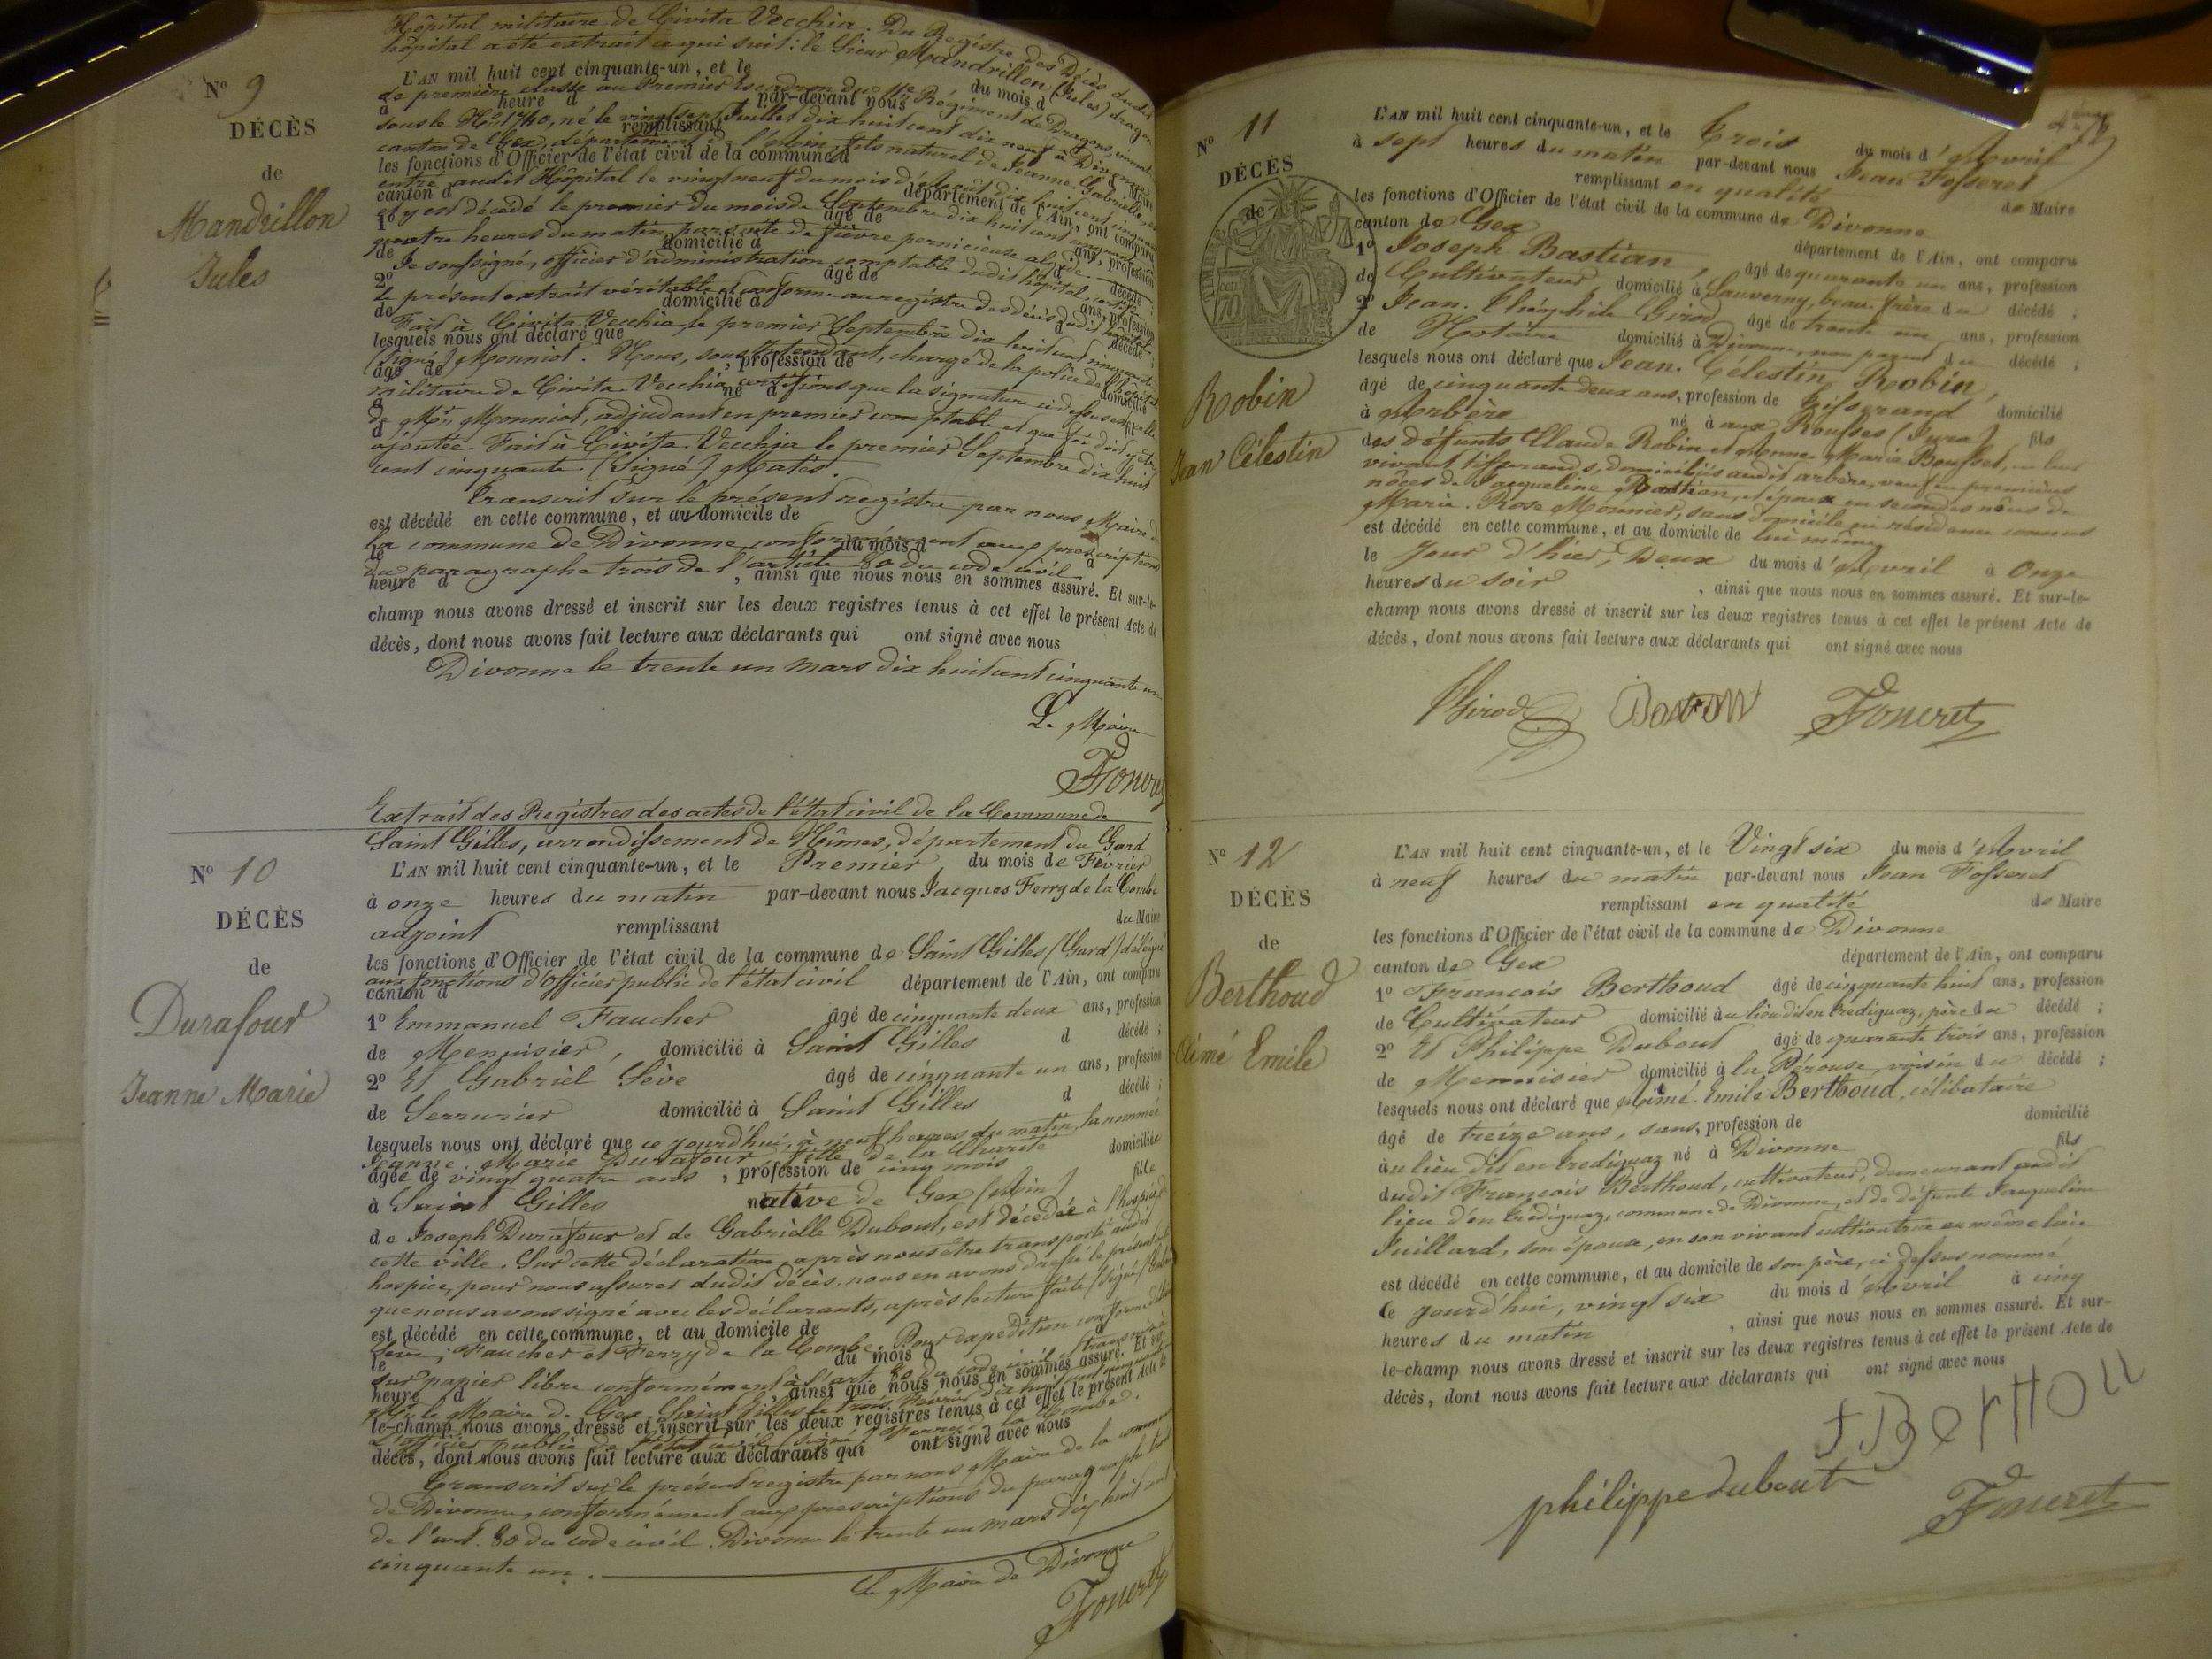 Hôpital militaire de Civita Vecchia. Du Registre des Décès dudit
hôpital a été extrait ce qui suit : le Sieur Mandrillon (Jules) dragon
N° 9
DÉCÈS
de
Mandrillon
Jules
L'AN mil huit cent cinquante-un, et le du mois d
de première classe au Premier Escadron du 11e Régiment de Dragons, immat.
à heure d par-devant nous
sous le N° 1740, né le vingt sept Juillet dix huit cent dix neuf à Divonne
remplissant
canton de Gex, département de l'Ain, fils naturel de Jeanne Gabrielle,
les fonctions d'Officier de l'état civil de la commune d
entré audit Hôpital le vingt neuf du mois d'Août dix huit cent cinquante
canton d département de l'Ain, ont comparu
et y est décédé le premier du mois de Septembre dix huit cent cinquante à
1° âgé de ans, profession
quatre heures du matin par suite de fièvre pernicieuse algide.
de domicilié à d décédé ;
Je soussigné, officier d'administration comptable dudit hôpital, certifie
2° âgé de ans, profession
le présent extrait véritable et conforme au registre des décès dudit hôpital.
de domicilié à d décédé ;
Fait à Civita Vecchia, le premier Septembre dix huit cent cinquante.
lesquels nous ont déclaré que
(Signé) Monniot. Nous, sous Intendant, chargé de la police de l'hôpital
âgé de , profession de domicilié
militaire de Civita Vecchia certifions que la signature ci-dessus est celle
à né à
de Mr Monniot, adjudant en premier comptable et que foi doit y être
d
ajoutée. Fait à Civita Vecchia le premier Septembre dix huit
cent cinquante. (Signé) Matis.
Transcrit sur le présent registre par nous Maire de
est décédé en cette commune, et au domicile de
la commune de Divonne conformément aux prescriptions
le du mois d à
du paragraphe trois de l'article 80 du code civil
heure d , ainsi que nous nous en sommes assuré. Et sur-le-
champ nous avons dressé et inscrit sur les deux registres tenus à cet effet le présent Acte de
décès, dont nous avons fait lecture aux déclarants qui ont signé avec nous
Divonne le trente un mars dix huit cent cinquante un
Le Maire
Fosseret
Extrait des Registres des actes de l'état civil de la Commune de
Saint Gilles, arrondissement de Nîmes, département du Gard
N° 10
DÉCÈS
de
Durafour
Jeanne Marie
L'AN mil huit cent cinquante-un, et le Premier du mois de Février
à onze heures du matin par-devant nous Jacques Ferry de la Combe
adjoint remplissant du Maire
les fonctions d'Officier de l'état civil de la commune de Saint Gilles (Gard) délégué
aux fonctions d'officier public de l'état civil département de l'Ain, ont comparu
canton d
1° Emmanuel Faucher âgé de cinquante deux ans, profession
de Menuisier, domicilié à Saint Gilles d décédé ;
2° Et Gabriel Sève âgé de cinquante un ans, profession
de Serrurier domicilié à Saint Gilles d décédé ;
lesquels nous ont déclaré que ce jourd'hui, à neuf heures du matin, la nommée
Jeanne Marie Durafour, fille de la Charité
âgée de vingt quatre ans , profession de cinq mois domiciliée
à Saint Gilles native de Gex (Ain) fille
de Joseph Durafour et de Gabrielle Dubout, est décédée à l'hospice de
cette ville. Sur cette déclaration, après nous être transporté audit
hospice, pour nous assurer dudit décès, nous en avons dressé le présent acte
que nous avons signé avec les déclarants, après lecture faite (Signé) Gabriel
est décédé en cette commune, et au domicile de
Sève, Faucher et Ferry de la Combe. Pour expédition conforme délivré
le du mois d
sur papier libre conformément à l'art. 80 du code civil et transmis à
heure d , ainsi que nous nous en sommes assuré. Et sur-
Mr le Maire de Gex. Saint Gilles le trois Février dix huit cent cinquante un
le-champ nous avons dressé et inscrit sur les deux registres tenus à cet effet le présent Acte de
L'officier public de l'état civil (signé) Ferry de la Combe.
décès, dont nous avons fait lecture aux déclarants qui ont signé avec nous
Transcrit sur le présent registre par nous Maire de la commune
de Divonne, conformément aux prescriptions du paragraphe trois
de l'art. 80 du code civil. Divonne le trente un mars dix huit cent
cinquante un.
Le Maire de Divonne
Fosseret
N° 11
DÉCÈS
de
Robin
Jean Célestin
L'AN mil huit cent cinquante-un, et le Trois du mois d'Avril
à sept heures du matin par-devant nous Jean Fosseret
remplissant en qualité de Maire
les fonctions d'Officier de l'état civil de la commune de Divonne
canton de Gex département de l'Ain, ont comparu
1° Joseph Bastian, âgé de quarante un ans, profession
de Cultivateur, domicilié à Sauverny, beau-frère du décédé ;
2° Jean Théophile Girod âgé de trente un ans, profession
de Notaire domicilié à Divonne, non parent du décédé ;
lesquels nous ont déclaré que Jean Célestin Robin,
âgé de cinquante deux ans, profession de tisserand domicilié
à Arbère né à aux Rousses (Jura) fils
des défunts Claude Robin et Anne Marie Bousset, en leur
vivant tisserands, domiciliés audit arbère, veuf en premières
nôces de Jacqueline Bastian, et époux en secondes nôces de
Marie Rose Monnier, sans domicile ni résidence connus
est décédé en cette commune, et au domicile de lui même
le jour d'hier, Deux du mois d'Avril à Onze
heures du soir , ainsi que nous nous en sommes assuré. Et sur-le-
champ nous avons dressé et inscrit sur les deux registres tenus à cet effet le présent Acte de
décès, dont nous avons fait lecture aux déclarants qui ont signé avec nous
Girod Bastian Fosseret
N° 12
DÉCÈS
de
Berthoud
Aimé Emile
L'AN mil huit cent cinquante-un, et le Vingt six du mois d'Avril
à neuf heures du matin par-devant nous Jean Fosseret
remplissant en qualité de Maire
les fonctions d'Officier de l'état civil de la commune de Divonne
canton de Gex département de l'Ain, ont comparu
1° François Berthoud âgé de cinquante huit ans, profession
de Cultivateur domicilié au lieu dit en Crediguaz, père du décédé ;
2° Et Philippe Dubout âgé de quarante trois ans, profession
de Menuisier domicilié à la Pérouse, voisin du décédé ;
lesquels nous ont déclaré que Aimé Emile Berthoud, célibataire
âgé de treize ans, sans, profession de domicilié
au lieu dit en Crediguaz né à Divonne fils
dudit François Berthoud, cultivateur, demeurant audit
lieu d'en Crédiguaz, commune de Divonne, et de défunte Jacqueline
Juillard, son épouse, en son vivant cultivatrice au même lieu
est décédé en cette commune, et au domicile de son père, ci-dessus nommé
ce jourd'hui, vingt six du mois d'Avril à cinq
heures du matin , ainsi que nous nous en sommes assuré. Et sur-
le-champ nous avons dressé et inscrit sur les deux registres tenus à cet effet le présent Acte de
décès, dont nous avons fait lecture aux déclarants qui ont signé avec nous
F BerTHOU
philippe dubout Fosseret